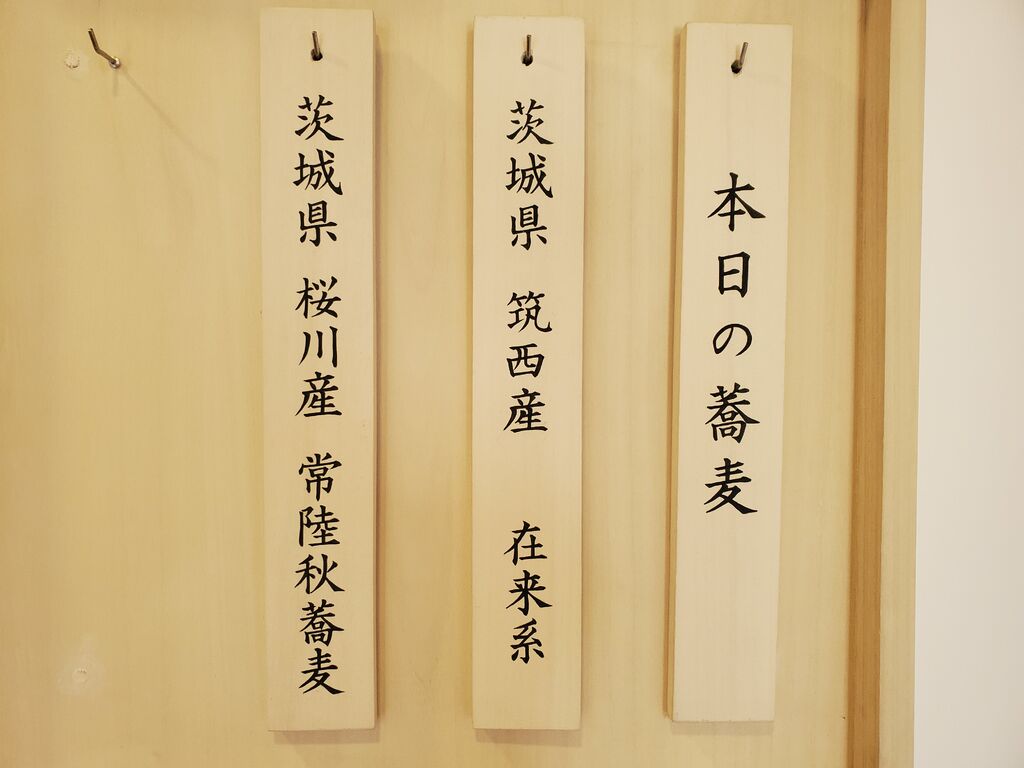 本日の蕎麦
茨城県 筑西産 在来系
茨城県 桜川産 常陸秋蕎麦